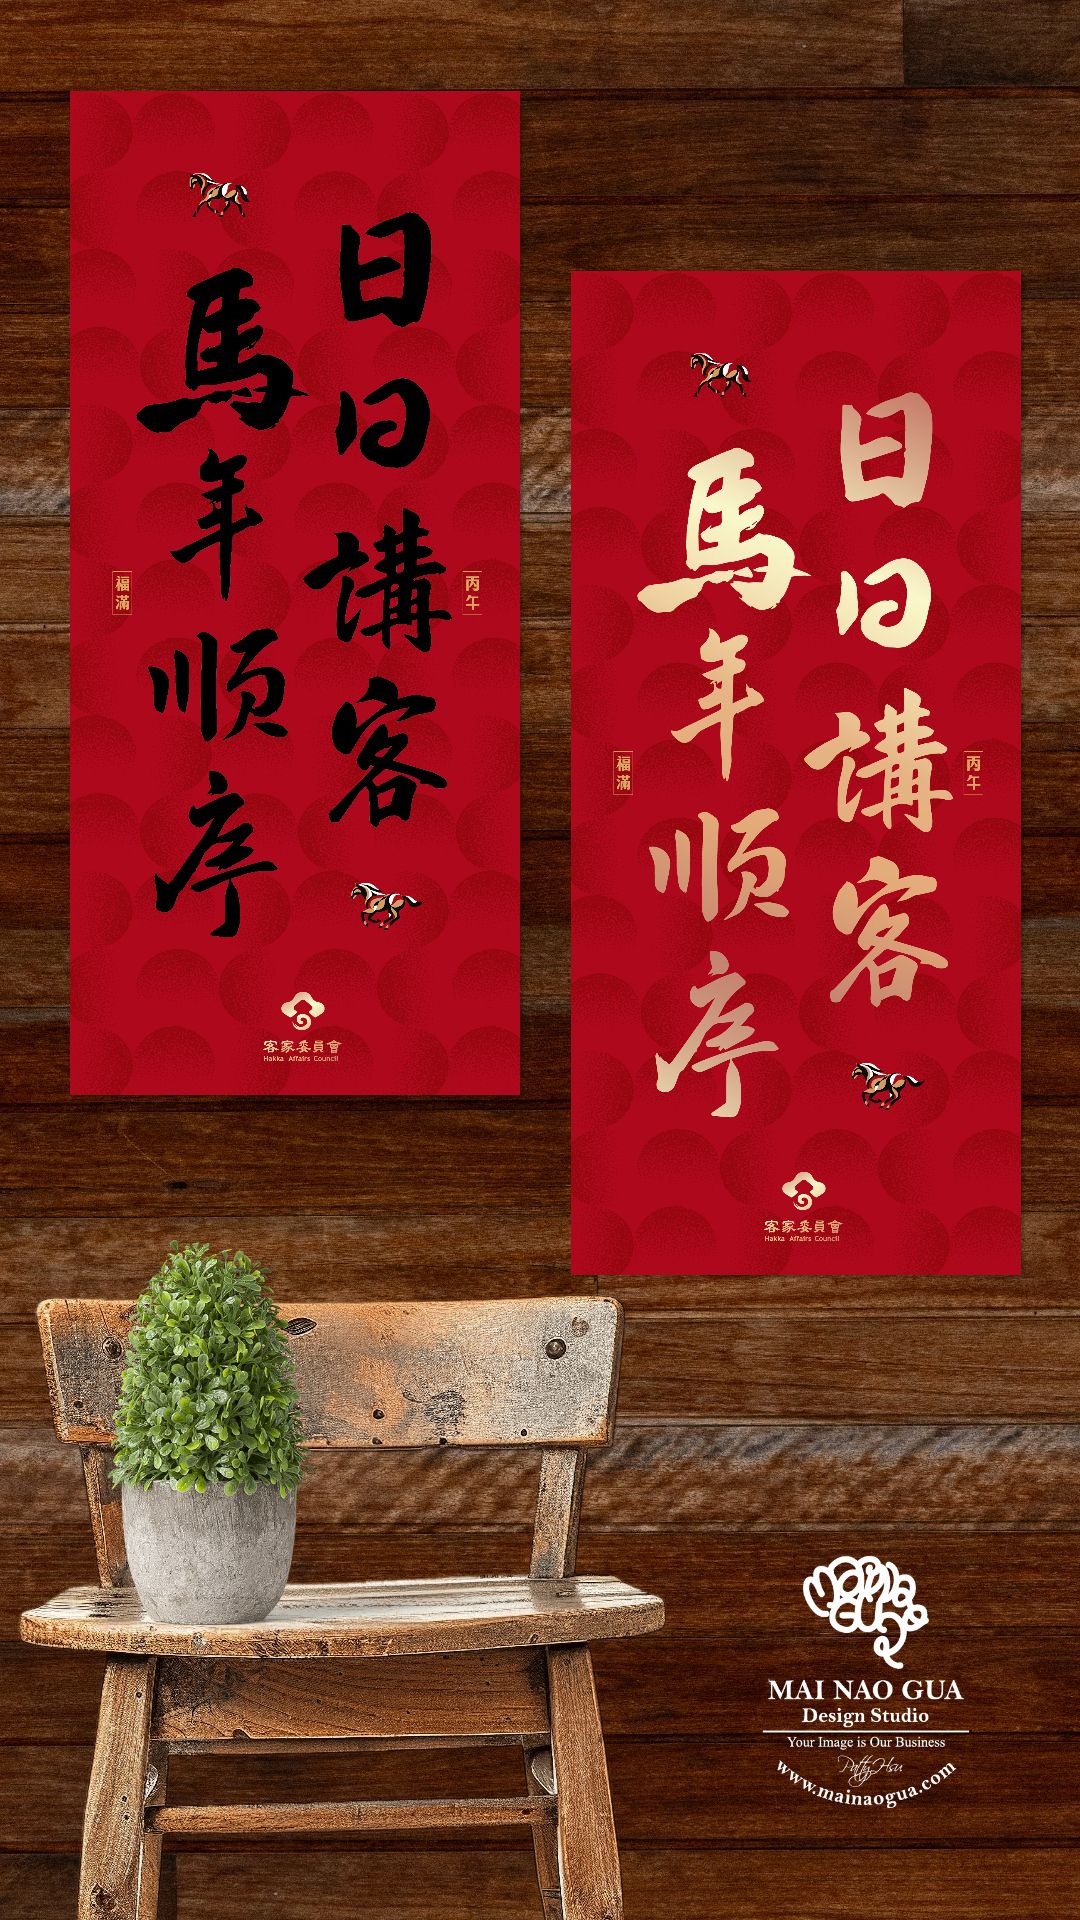 日日講客
馬年顺序
丙午
福滿
客家委員會
Hakka Affairs Council
日日講客
馬年顺序
丙午
福滿
客家委員會
Hakka Affairs Council
MAI NAO GUA
Design Studio
Your Image is Our Business
Patty Hsu
www.mainaogua.com